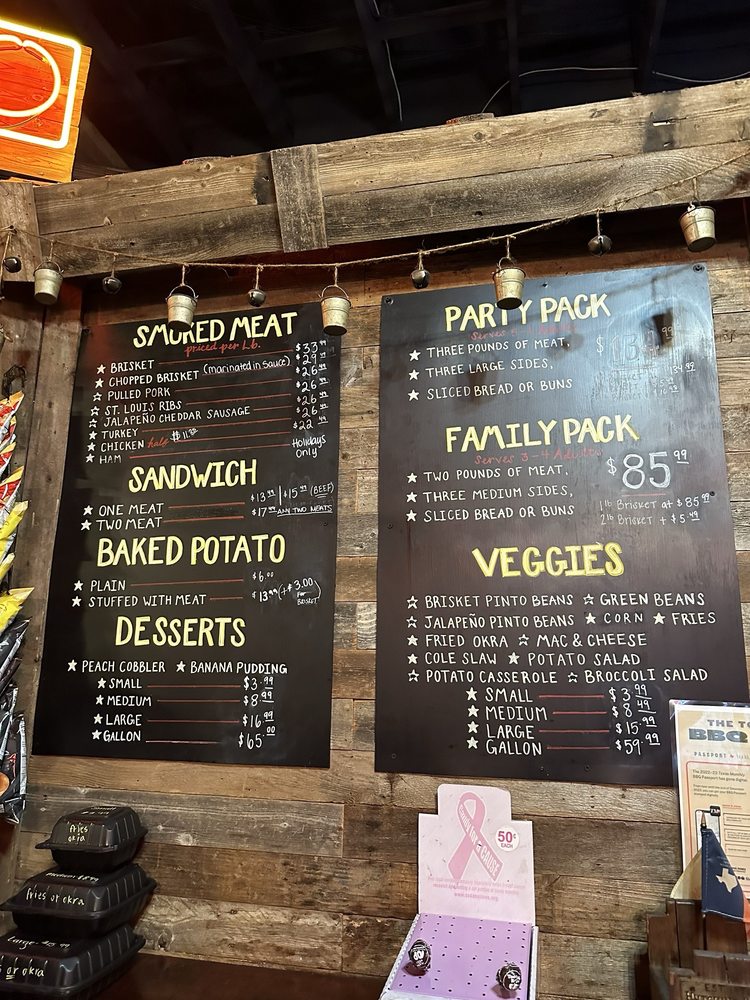 SMOKED MEAT
priced per Lb.
BRISKET $33.99
CHOPPED BRISKET (marinated in sauce) $29.99
PULLED PORK $26.49
ST. LOUIS RIBS $26.49
JALAPEÑO CHEDDAR SAUSAGE $26.49
TURKEY $26.49
CHICKEN half $22.49
HAM Holidays Only
SANDWICH
ONE MEAT $13.99 | $15.99 (BEEF)
TWO MEAT $17.99 ANY TWO MEATS
BAKED POTATO
PLAIN $6.00
STUFFED WITH MEAT $13.99 (+$3.00 For BRISKET)
DESSERTS
PEACH COBBLER BANANA PUDDING
SMALL $3.99
MEDIUM $8.99
LARGE $16.99
GALLON $65.00
PARTY PACK
THREE POUNDS OF MEAT,
THREE LARGE SIDES,
SLICED BREAD OR BUNS
FAMILY PACK
Serves 3-4 Adults
TWO POUNDS OF MEAT, $85.99
THREE MEDIUM SIDES,
SLICED BREAD OR BUNS
1lb Brisket at $85.99
2lb Brisket + $5.49
VEGGIES
BRISKET PINTO BEANS GREEN BEANS
JALAPEÑO PINTO BEANS CORN FRIES
FRIED OKRA MAC & CHEESE
COLE SLAW POTATO SALAD
POTATO CASSEROLE BROCCOLI SALAD
SMALL $3.99
MEDIUM $8.49
LARGE $15.99
GALLON $59.99
fries okra
fries or okra
s or okra
50¢
EACH
THE TO
BBQ
PASSPORT